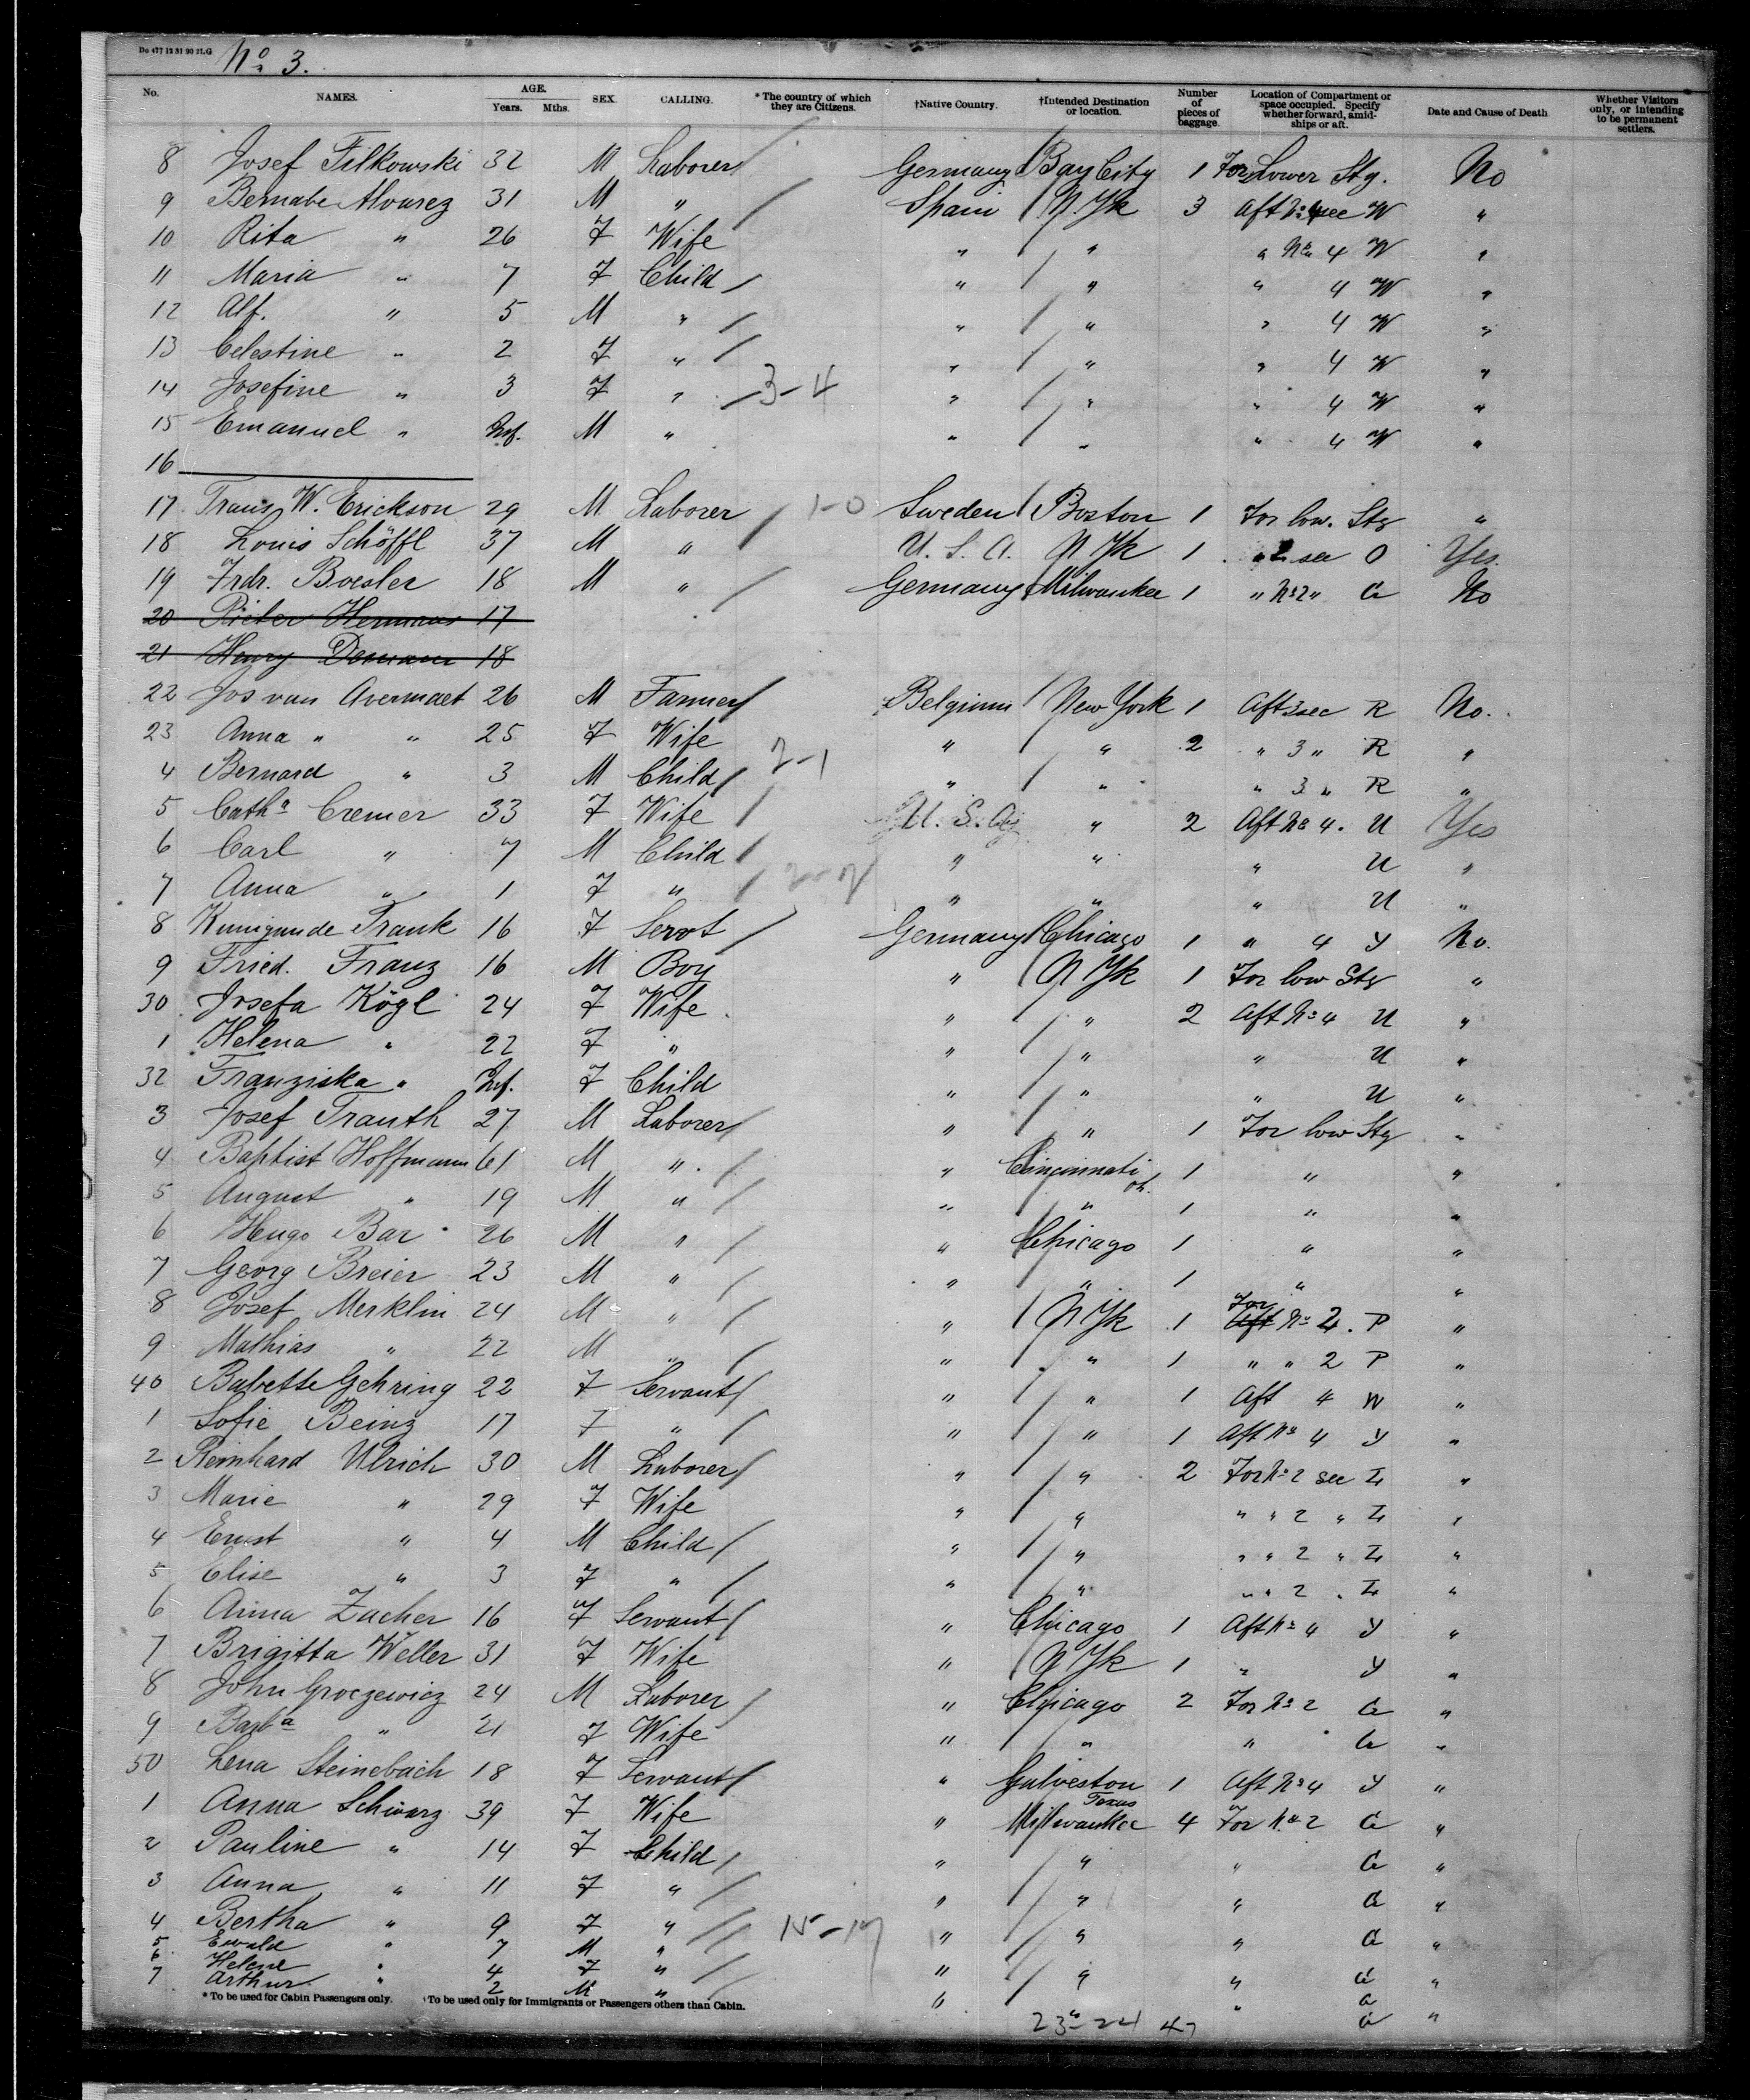 Do 477 12 31 90 2LG
No 3.
No. NAMES. AGE. Years. Mths. SEX. CALLING. * The country of which they are Citizens. †Native Country. †Intended Destination or location. Number of pieces of baggage. Location of Compartment or space occupied. Specify whether forward, amidships or aft. Date and Cause of Death Whether Visitors only, or intending to be permanent settlers.
8 Josef Filkowski 32 M Laborer / Germany / Bay City 1 For Lower Stg. No
9 Bernabe Alvarez 31 M " / Spain / N. Yk 3 Aft No 4 sec W "
10 Rita " 26 F Wife " / " " No 4 W "
11 Maria " 7 F Child / " / " " 4 W "
12 Alf. " 5 M " / " / " " 4 W "
13 Celestine " 2 F " / " / " " 4 W "
14 Josefine " 3 F " / 3-4 " / " " 4 W "
15 Emanuel " Inf. M " " / " " 4 W "
16
17 Frans W. Erickson 29 M Laborer / 1-0 Sweden / Boston 1 For low. Stg "
18 Louis Schöffl 37 M " U. S. A. N Yk 1 " 2 sec O Yes.
19 Frdr. Boesler 18 M " / Germany / Milwaukee 1 " No 2 " G No
20 Pieter Hermans 17
21 Henry Demann 18
22 Jos van Avermaet 26 M Farmer / Belgium / New York 1 Aft 3 sec R No.
23 Anna " " 25 F Wife " / " 2 " 3 " R "
4 Bernard " 3 M Child / 2-1 " / " " 3 " R "
5 Catha Cremer 33 F Wife / U. S. A. " 2 Aft No 4. U Yes
6 Carl " 7 M Child / " " " U "
7 Anna " 1 F " / " " " U "
8 Kunigunde Frank 16 F Servt / Germany / Chicago 1 " 4 Y No.
9 Fried. Franz 16 M Boy " / N Yk 1 For low Stg "
30 Josefa Kögl 24 F Wife " / " 2 Aft No 4 U "
1 Helena " 22 F " " / " " U "
32 Franziska " Inf. F Child " / " " U "
3 Josef Trauth 27 M Laborer / " / " 1 For low Stg "
4 Baptist Hoffmann 61 M " / " Cincinnati Oh. 1 " "
5 August " 19 M " / " / " 1 " "
6 Hugo Bar 26 M " / " / Chicago 1 " "
7 Georg Breier 23 M " / " / " 1 " "
8 Josef Merklin 24 M " / " / N Yk 1 Aft For No 2. P "
9 Mathias " 22 M " / " / " 1 " " 2 P "
40 Babette Gehring 22 F Servant / " / " 1 Aft 4 W "
1 Sofie Beinz 17 F " / " / " 1 Aft No 4 Y "
2 Reinhard Ulrich 30 M Laborer / " / " 2 For No 2 sec I "
3 Marie " 29 F Wife " / " " " 2 " I "
4 Ernst " 4 M Child / " / " " " 2 " I "
5 Elise " 3 F " / " / " " " 2 " I "
6 Anna Zacher 16 F Servant / " Chicago 1 Aft No 4 Y "
7 Brigitta Weller 31 F Wife " / N Yk 1 " Y "
8 John Groczewicz 24 M Laborer / " Chicago 2 For No 2 G "
9 Barba " 21 F Wife " / " " G "
50 Lena Steinebach 18 F Servant / " Galveston Texas 1 Aft No 4 Y "
1 Anna Schwarz 39 F Wife " Milwaukee 4 For No 2 G "
2 Pauline " 14 F Child / " / " " G "
3 Anna " 11 F " / " / " " G "
4 Bertha " 9 F " / 15-17 " / " " G "
5 Ewald " 7 M " / " / " " G "
6 Helene " 4 F " / " " G "
7 Arthur " 2 M " / " G "
* To be used for Cabin Passengers only. †To be used only for Immigrants or Passengers others than Cabin.
23-24 47